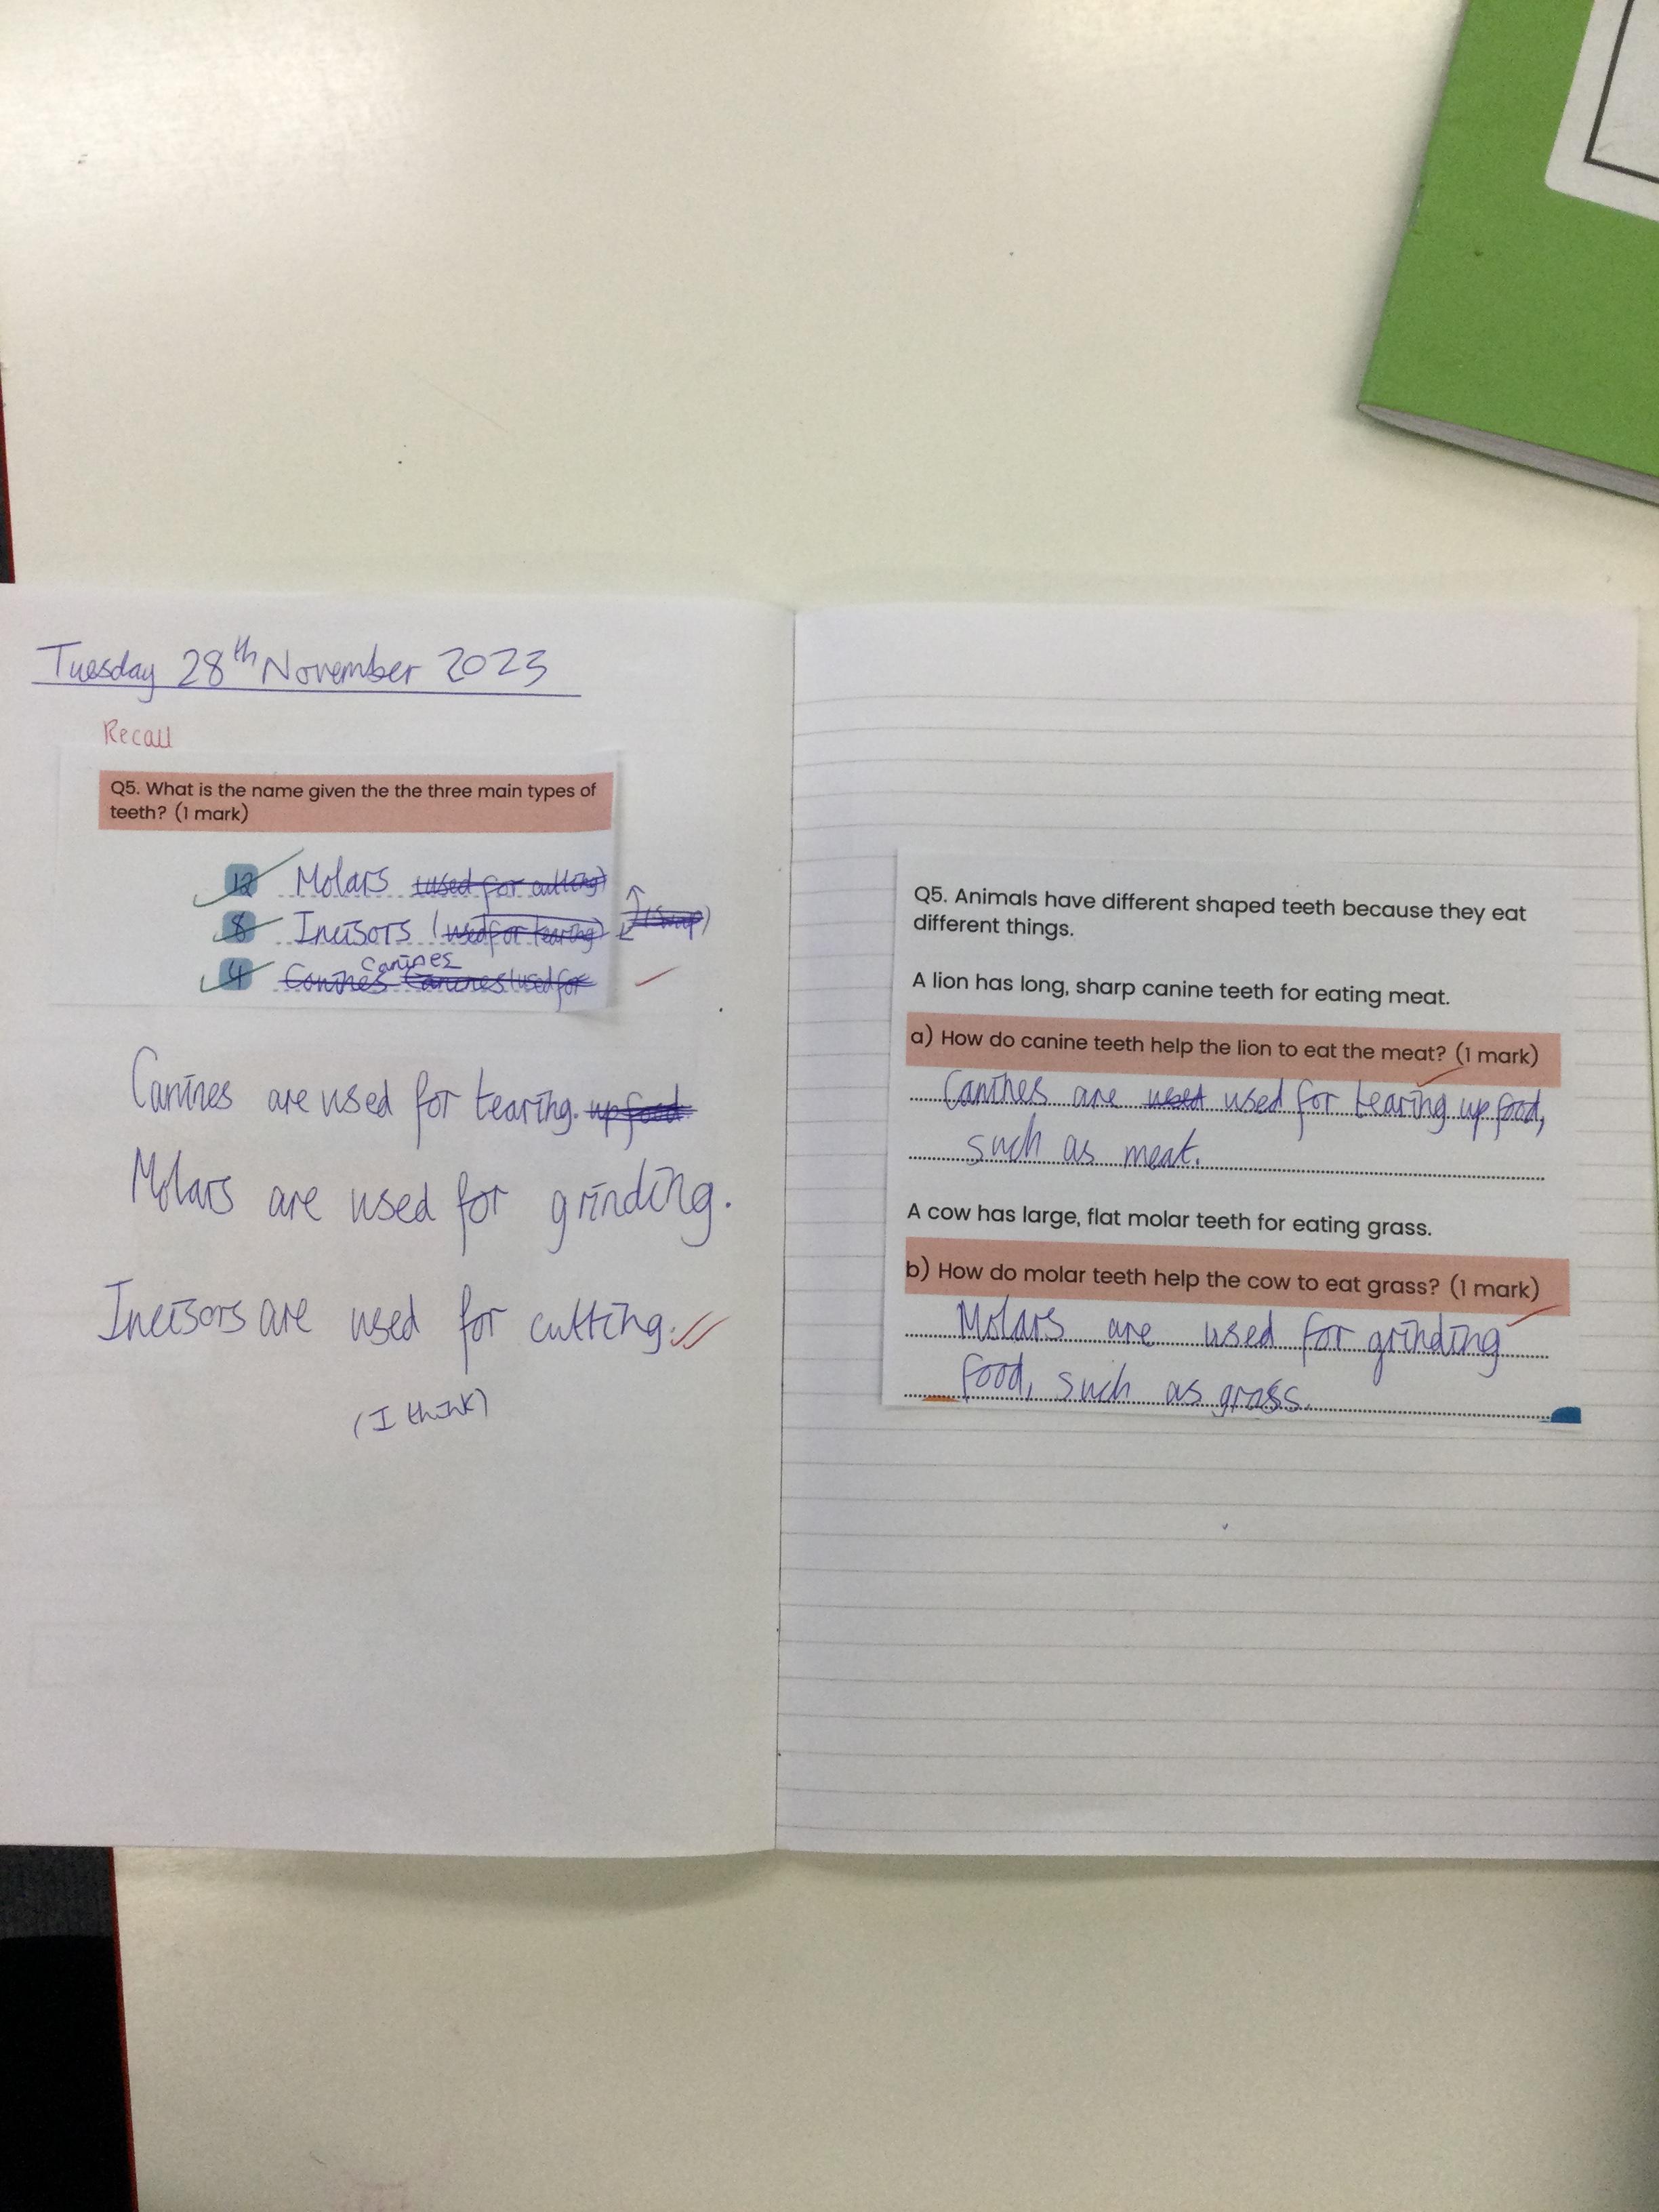 Tuesday 28th November 2023
Recall
Q5. What is the name given the the three main types of
teeth? (1 mark)
12 Molars (used for cutting)
8 Incisors (used for tearing) (swap)
Canines
4 Canines Canines (used for
Canines are used for tearing. up food
Molars are used for grinding.
Incisors are used for cutting.
(I think)
Q5. Animals have different shaped teeth because they eat
different things.
A lion has long, sharp canine teeth for eating meat.
a) How do canine teeth help the lion to eat the meat? (1 mark)
Canines are used used for tearing up food,
such as meat.
A cow has large, flat molar teeth for eating grass.
b) How do molar teeth help the cow to eat grass? (1 mark)
Molars are used for grinding
food, such as grass.